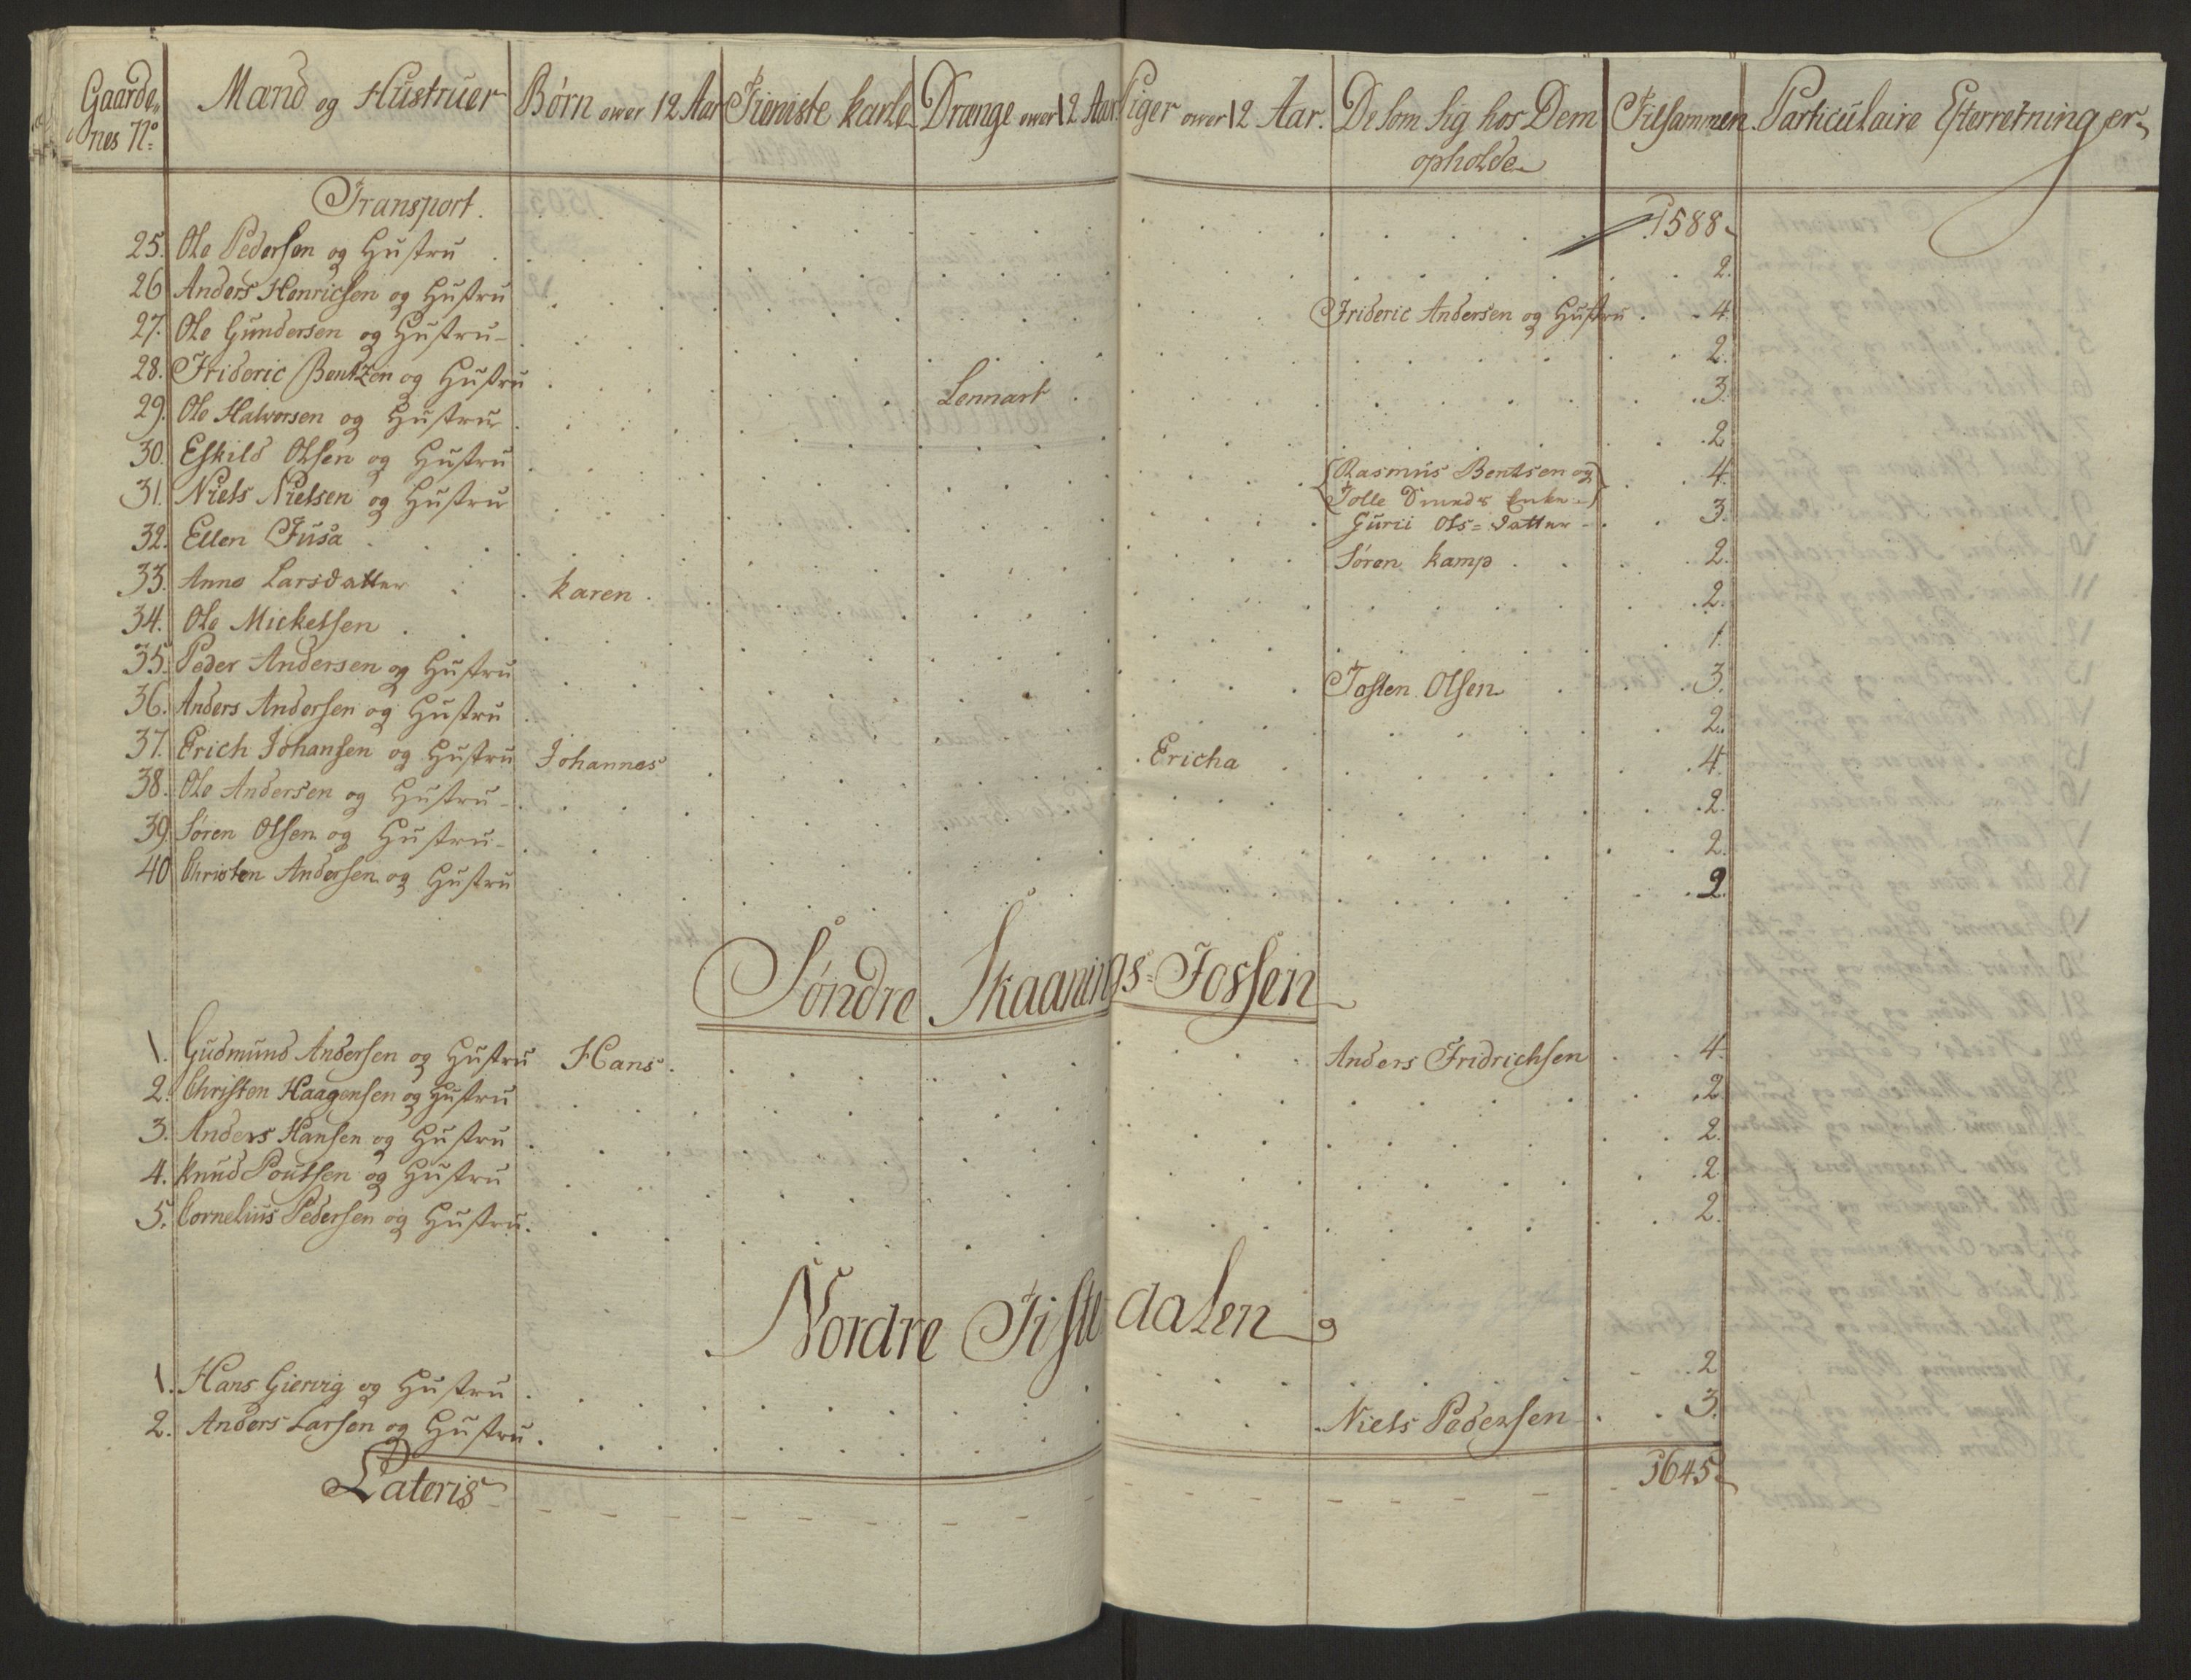 Gaarde„ nes No: Mænd og Hustruer Børn over 12 Aar Tieniste karle Drænge over 12 Aar Piger over 12 Aar. De som sig hos Dem opholde Tilsammen. Particulaire Efterretninger
Transport. 1588
25. Ole Pedersen og Hustru 2.
26 Anders Henrichsen og Hustru Frideric Andersen og Hustru 4.
27. Ole Gundersen og Hustru 2.
28. Frideric Bentzen og Hustru Lennart 3.
29. Ole Halvorsen og Hustrue 2
30. Eskild Olsen og Hustru Rasmus Bentsen og 4.
Enke
31. Niels Nielsen og Hustru Gurii Ols=datter 3.
32. Ellen Fusa Søren kamp 2.
33. Anne Larsdatter karen 2.
34. Ole Mickelsen 1.
35. Peder Andersen og Hustru Tosten Olsen 3.
36. Anders Andersen og Hustru 2.
37. Erich Johansen og Hustru Johannes Ericha 4.
38. Ole Andersen og Hustru 2.
39. Søren Olsen og Hustru 2.
40 Christen Andersen og Hustru 2.
Søndre Skaanings=Fossen
1. Gudmund Andersen og Hustru Hans Anders Fridrichsen 4.
2. Christen Haagensen og Hustru 2
3. Anders Hansen og Hustru 2.
4. Knud Poulsen og Hustru 2
5. Cornelius Pedersen og Hustru 2.
Nordre Tistedalen
1. Hans Giervig og Hustru 2
2. Anders Larsen og Hustru Niels Pedersen 3.
Lateris 1645